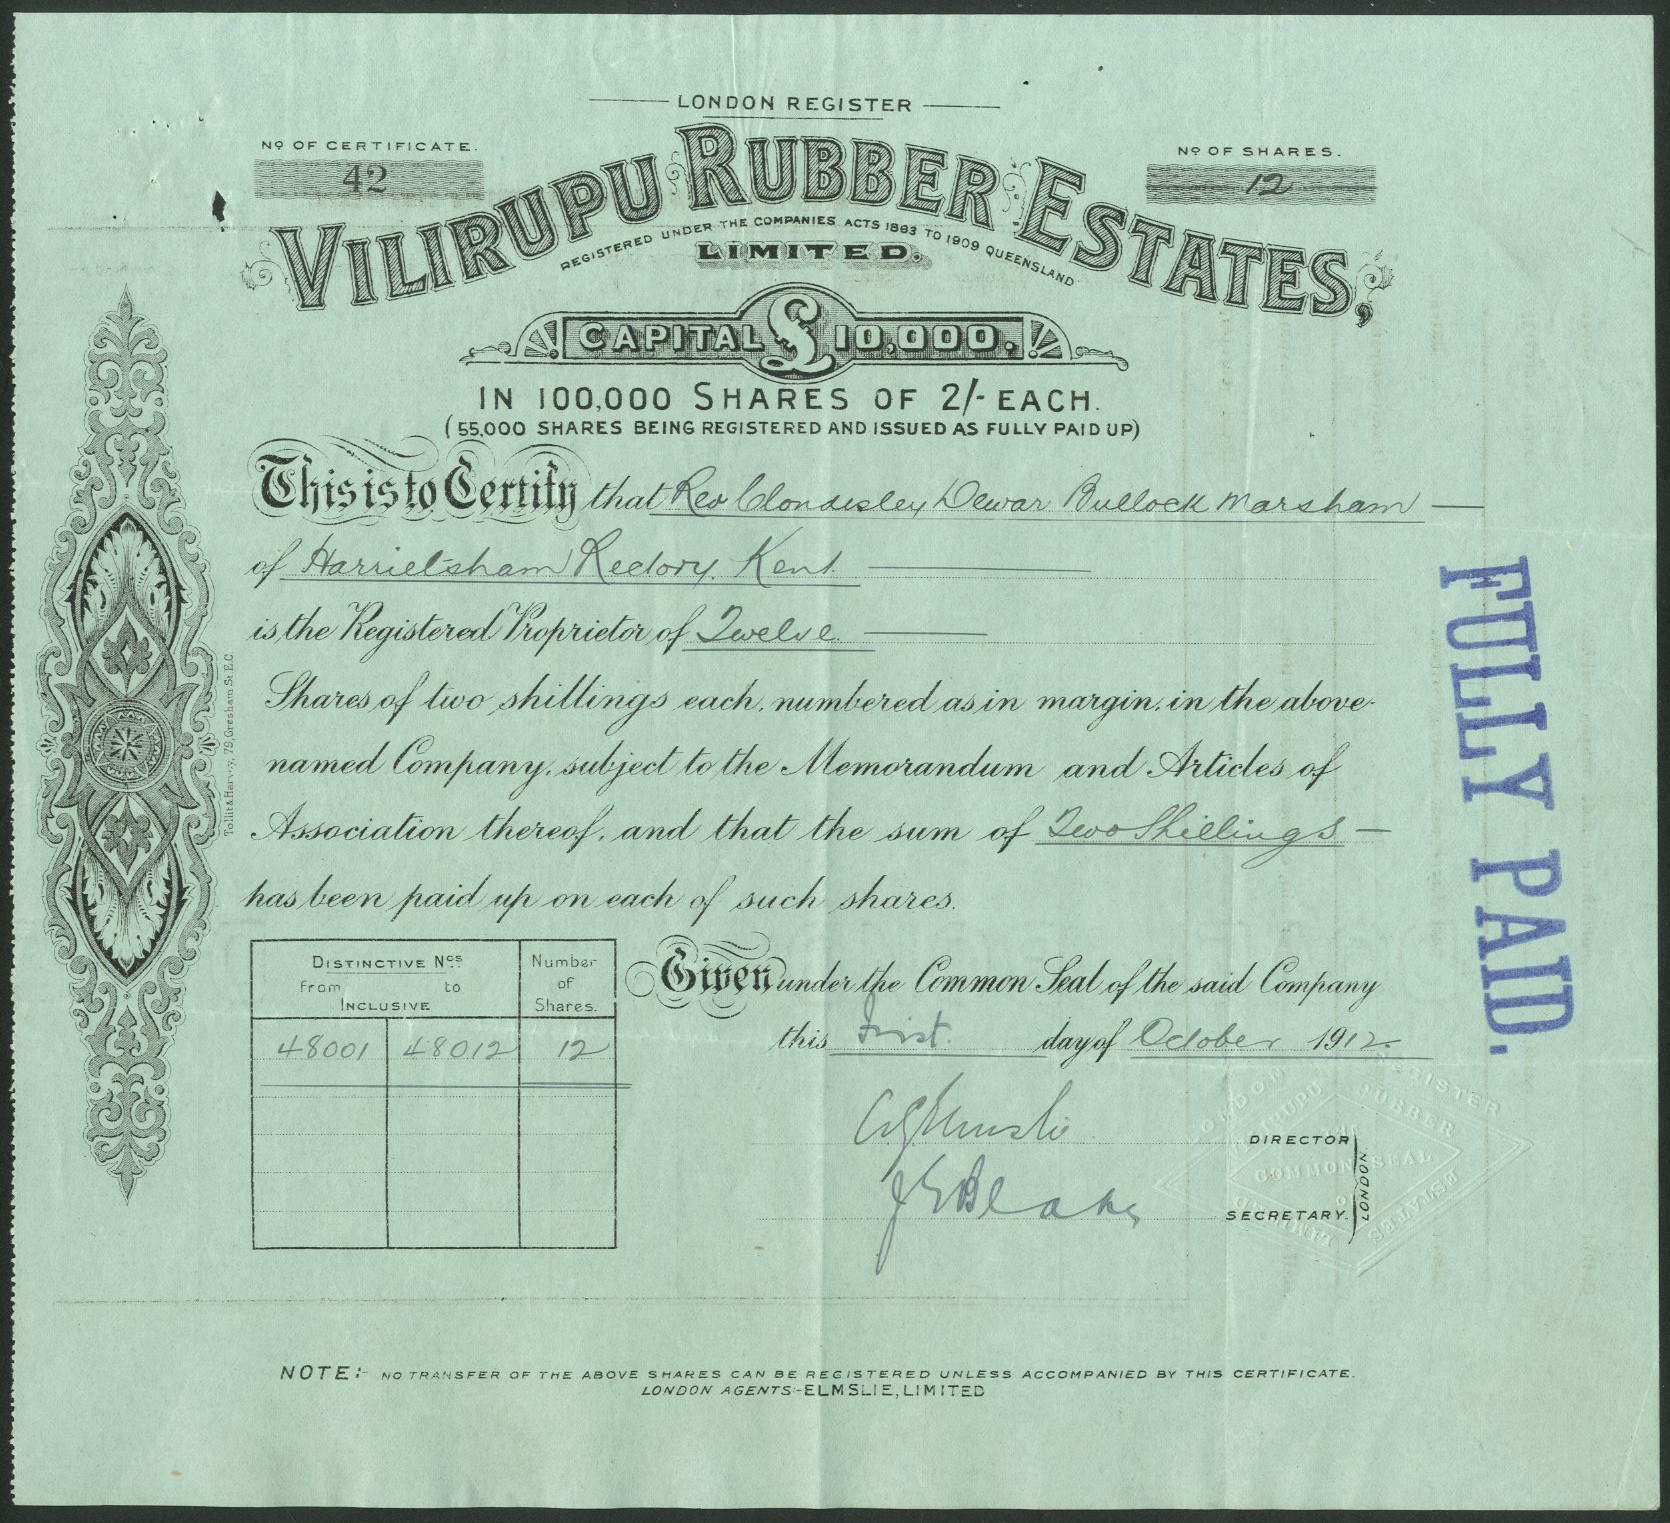 LONDON REGISTER
Nº OF CERTIFICATE.
42
Nº OF SHARES.
12
VILIRUPU RUBBER ESTATES,
REGISTERED UNDER THE COMPANIES ACTS 1863 TO 1909 QUEENSLAND
LIMITED.
CAPITAL £10,000.
IN 100,000 SHARES OF 2/- EACH.
(55,000 SHARES BEING REGISTERED AND ISSUED AS FULLY PAID UP)
This is to Certify that Rev Clondesley Dewar Bullock Marsham
of Harrietsham Rectory. Kent.
is the Registered Proprietor of Twelve
Shares of two shillings each, numbered as in margin, in the above-
named Company, subject to the Memorandum and Articles of
Association thereof, and that the sum of Two Shillings
has been paid up on each of such shares.
DISTINCTIVE Nos
from to
INCLUSIVE
Number
of
Shares.
48001 48012 12
Given under the Common Seal of the said Company
this First. day of October 1912.
DIRECTOR
J E Blake
SECRETARY.
LONDON
LONDON REGISTER
VILIRUPU RUBBER ESTATES LIMITED
COMMON SEAL
FULLY PAID.
Tollit & Harvey, 79, Gresham St. E.C.
NOTE:- NO TRANSFER OF THE ABOVE SHARES CAN BE REGISTERED UNLESS ACCOMPANIED BY THIS CERTIFICATE.
LONDON AGENTS:-ELMSLIE, LIMITED